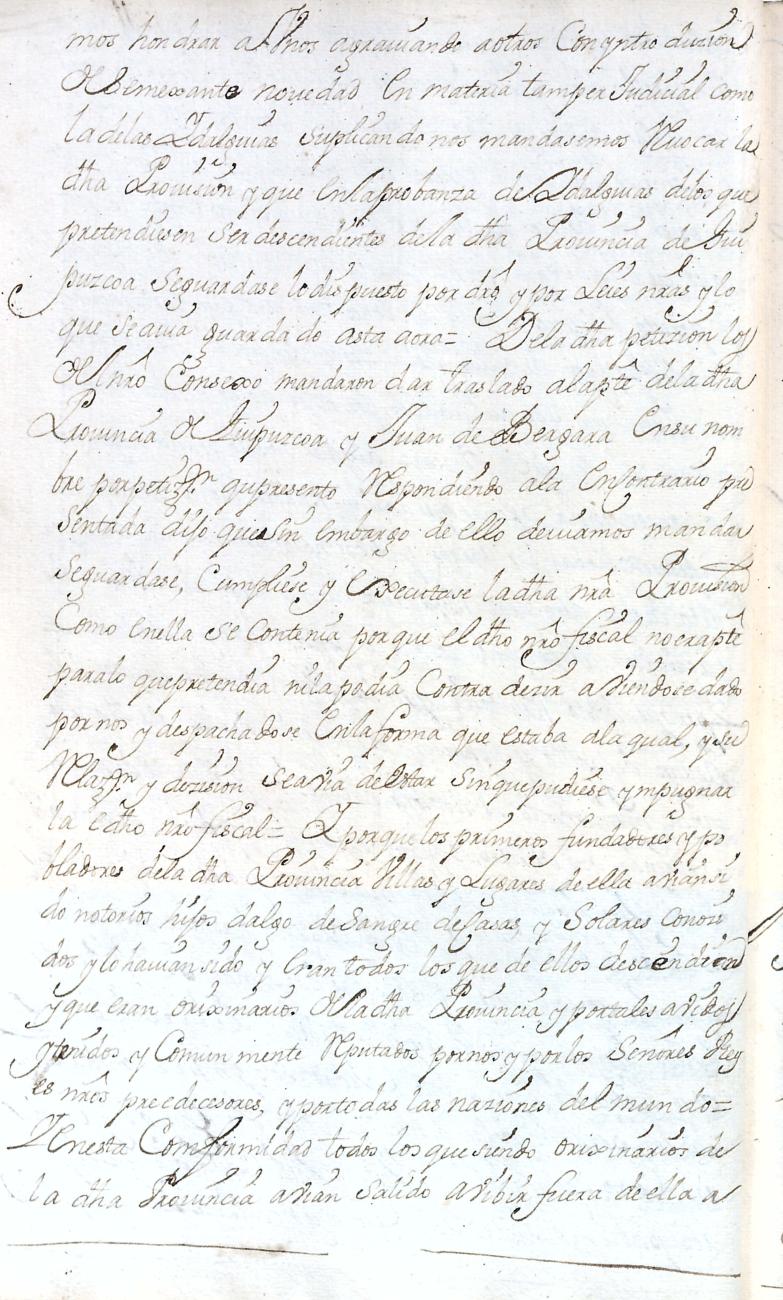 mos hondrar a Vnos agrauiando a otros Con yntroduzion
de semexante novedad En materia tam perJudicial como
la delas Ydalguias suplicandonos mandasemos Reuocar la
dha Prouision y que Enla probanza de Ydalguias delos que
pretendiesen ser descendientes dela dha Prouincia de Gui
puzcoa se guardase lo dispuesto por dro y por Leies nras y lo
que se auia guardado asta aora= Dela dha petizion los
del nro Consexo mandaron dar traslado ala pte dela dha
Prouincia de Guipuzcoa y Juan de Bergara En su nom
bre por petizon qe presento Respondiendo ala En contrario pre
sentada dijo que sin embargo de ello deuiamos mandar
se guardase, Cumpliese y Executase la dha nra Prouision
Como en ella se Contenia porque el dho nro fiscal no era pte
para lo que pretendia ni la podia Contradezir aViendose dado
por nos y despachadose En la forma que estaba ala qual, y su
Relazon y dezision se aVia de Estar sin que pudiese ympugnar
la el dho nro fiscal= Y porque los primeros fundadores y po
bladores dela dha Prouincia Villas y Lugares de ella aVian si
do notorios hijos dalgo de Sangre de Casas, y Solares Conoci
dos y lo hauian sido y Eran todos los que de ellos descendieron
y que eran orixinarios de la dha Prouincia y por tales aVidos
y tenidos y Comun mente Reputados por nos y por los Señores Rey
es nros predecesores, y por todas las naziones del mundo=
Y en esta Comformidad todos los que siendo orixinarios de
la dha Prouincia aVian Salido a Vibir fuera de ella a